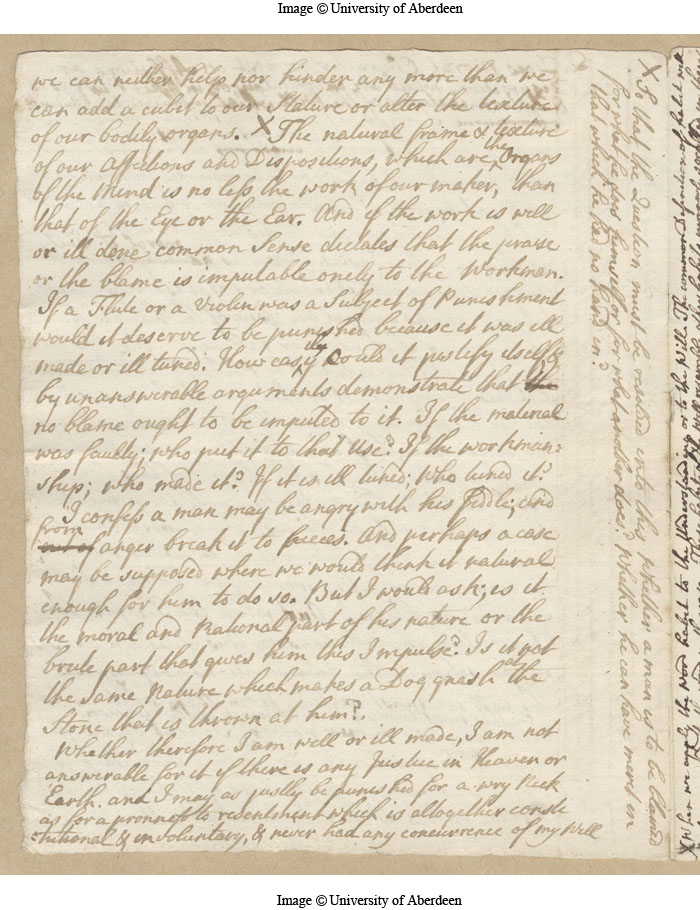 Image © University of Aberdeen
we can neither help nor hinder any more than we
can add a cubit to our Stature or alter the texture
of our bodily organs. X The natural frame & texture
of our Affections and Dispositions, which are the Organs
of the Mind is no less the work of our maker, than
that of the Eye or the Ear. And if the work is well
or ill done common Sense dictates that the praise
or the blame is imputable onely to the Workman.
If a Flute or a Violin was a Subject of Punishment
would it deserve to be punished because it was ill
made or ill tuned. How easily could it justify itself &
by unanswerable arguments demonstrate that
no blame ought to be imputed to it. If the material
was faulty; who put it to that Use? If the workman:
ship; who made it? If it is ill tuned; Who tuned it?
I confess a man may be angry with his fiddle; and
from
out of anger break it to pieces. And perhaps a case
may be supposed where we would think it natural
enough for him to do so. But I would ask; is it
the moral and Rational part of his nature or the
brute part that gives him this Impulse? Is it not
the same Nature which makes a Dog gnash the
Stone that is thrown at him?
Whether therefore I am well or ill made, I am not
answerable for it if there is any Justice in Heaven or
Earth. and I may as justly be punished for a wry Neck
as for a proneness to resentment which is altogether consti
tutional & involuntary, & never had any concurrence of my Will
X So that the Question must be resolved into this Whether a man is to be blamed
for what he does himself or for what another does? Whether he can have merit in
that which he had no hand in?
X When we apply the Word habit to the Understanding or to the Will. The common Definition of Habit will
Image © University of Aberdeen